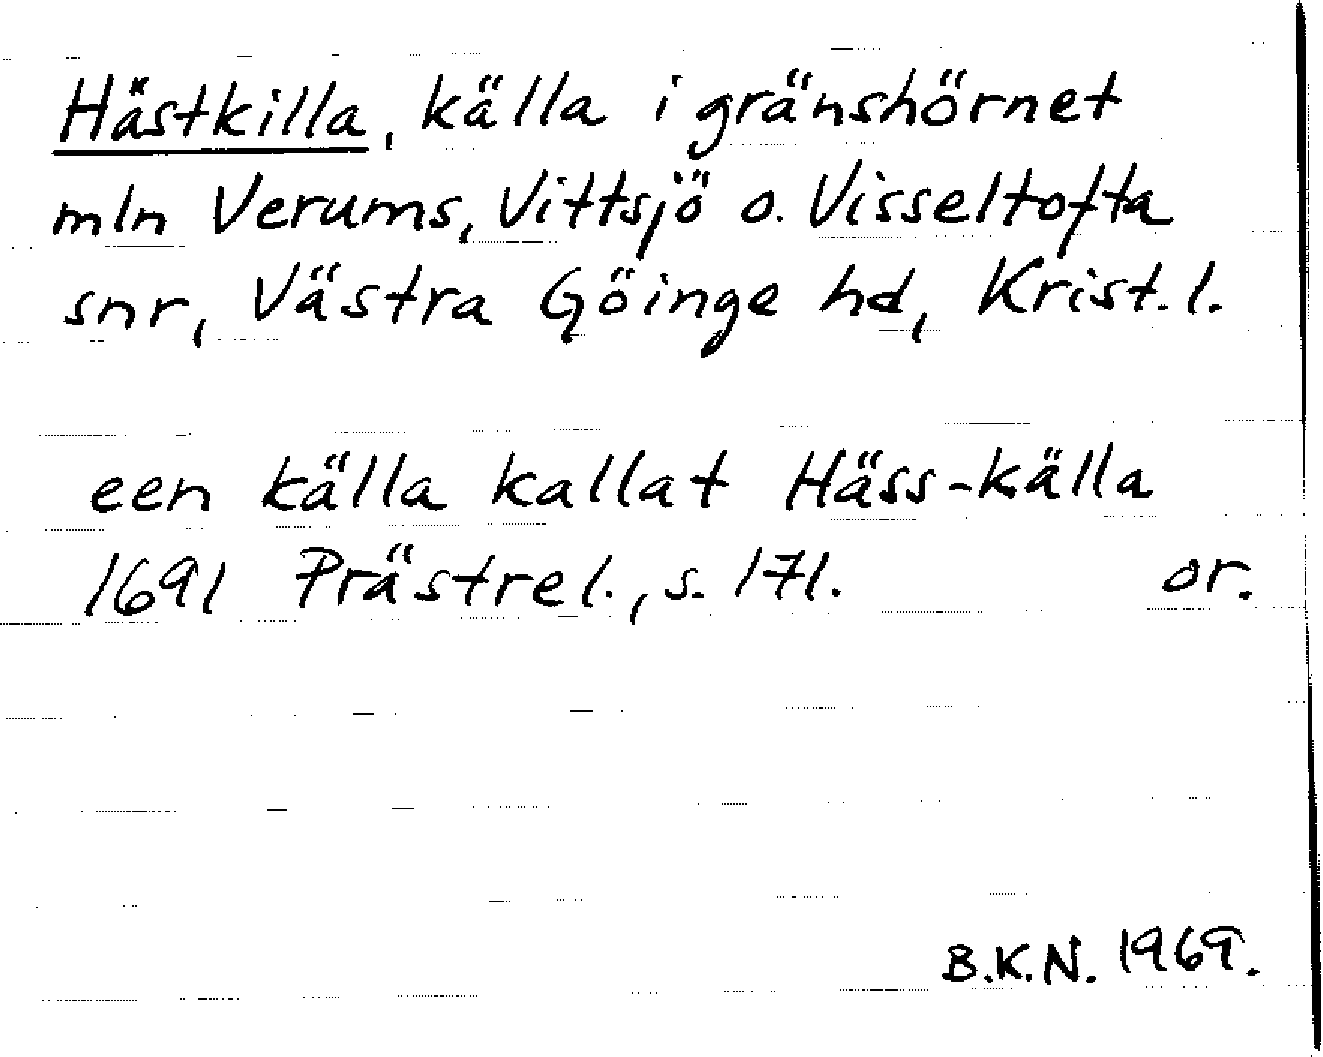 Hästkilla, källa i gränshörnet
mln Verums, Vittsjö o. Visseltofta
snr, Västra Göinge hd, Krist. l.
een källa kallat Häss-källa
1691 Prästrel., s. 171. or.
B.K.N. 1969.